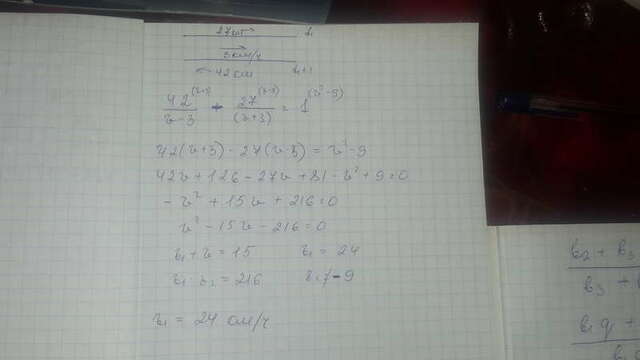 27 км t₁
3 км/ч
← 42 км t₁+1
42^(v+3)/(v-3) - 27^(v-3)/(v+3) = 1^(v²-9)
42(v+3) - 27(v-3) = v²-9
42v + 126 - 27v + 81 - v² + 9 = 0
- v² + 15v + 216 = 0
v² - 15v - 216 = 0
v₁ + v = 15 v₁ = 24
v₁ v₂ = 216 v₂ ≠ -9
v₁ = 24 км/ч
b₂ + b₃
b₃ +
b₁ q +